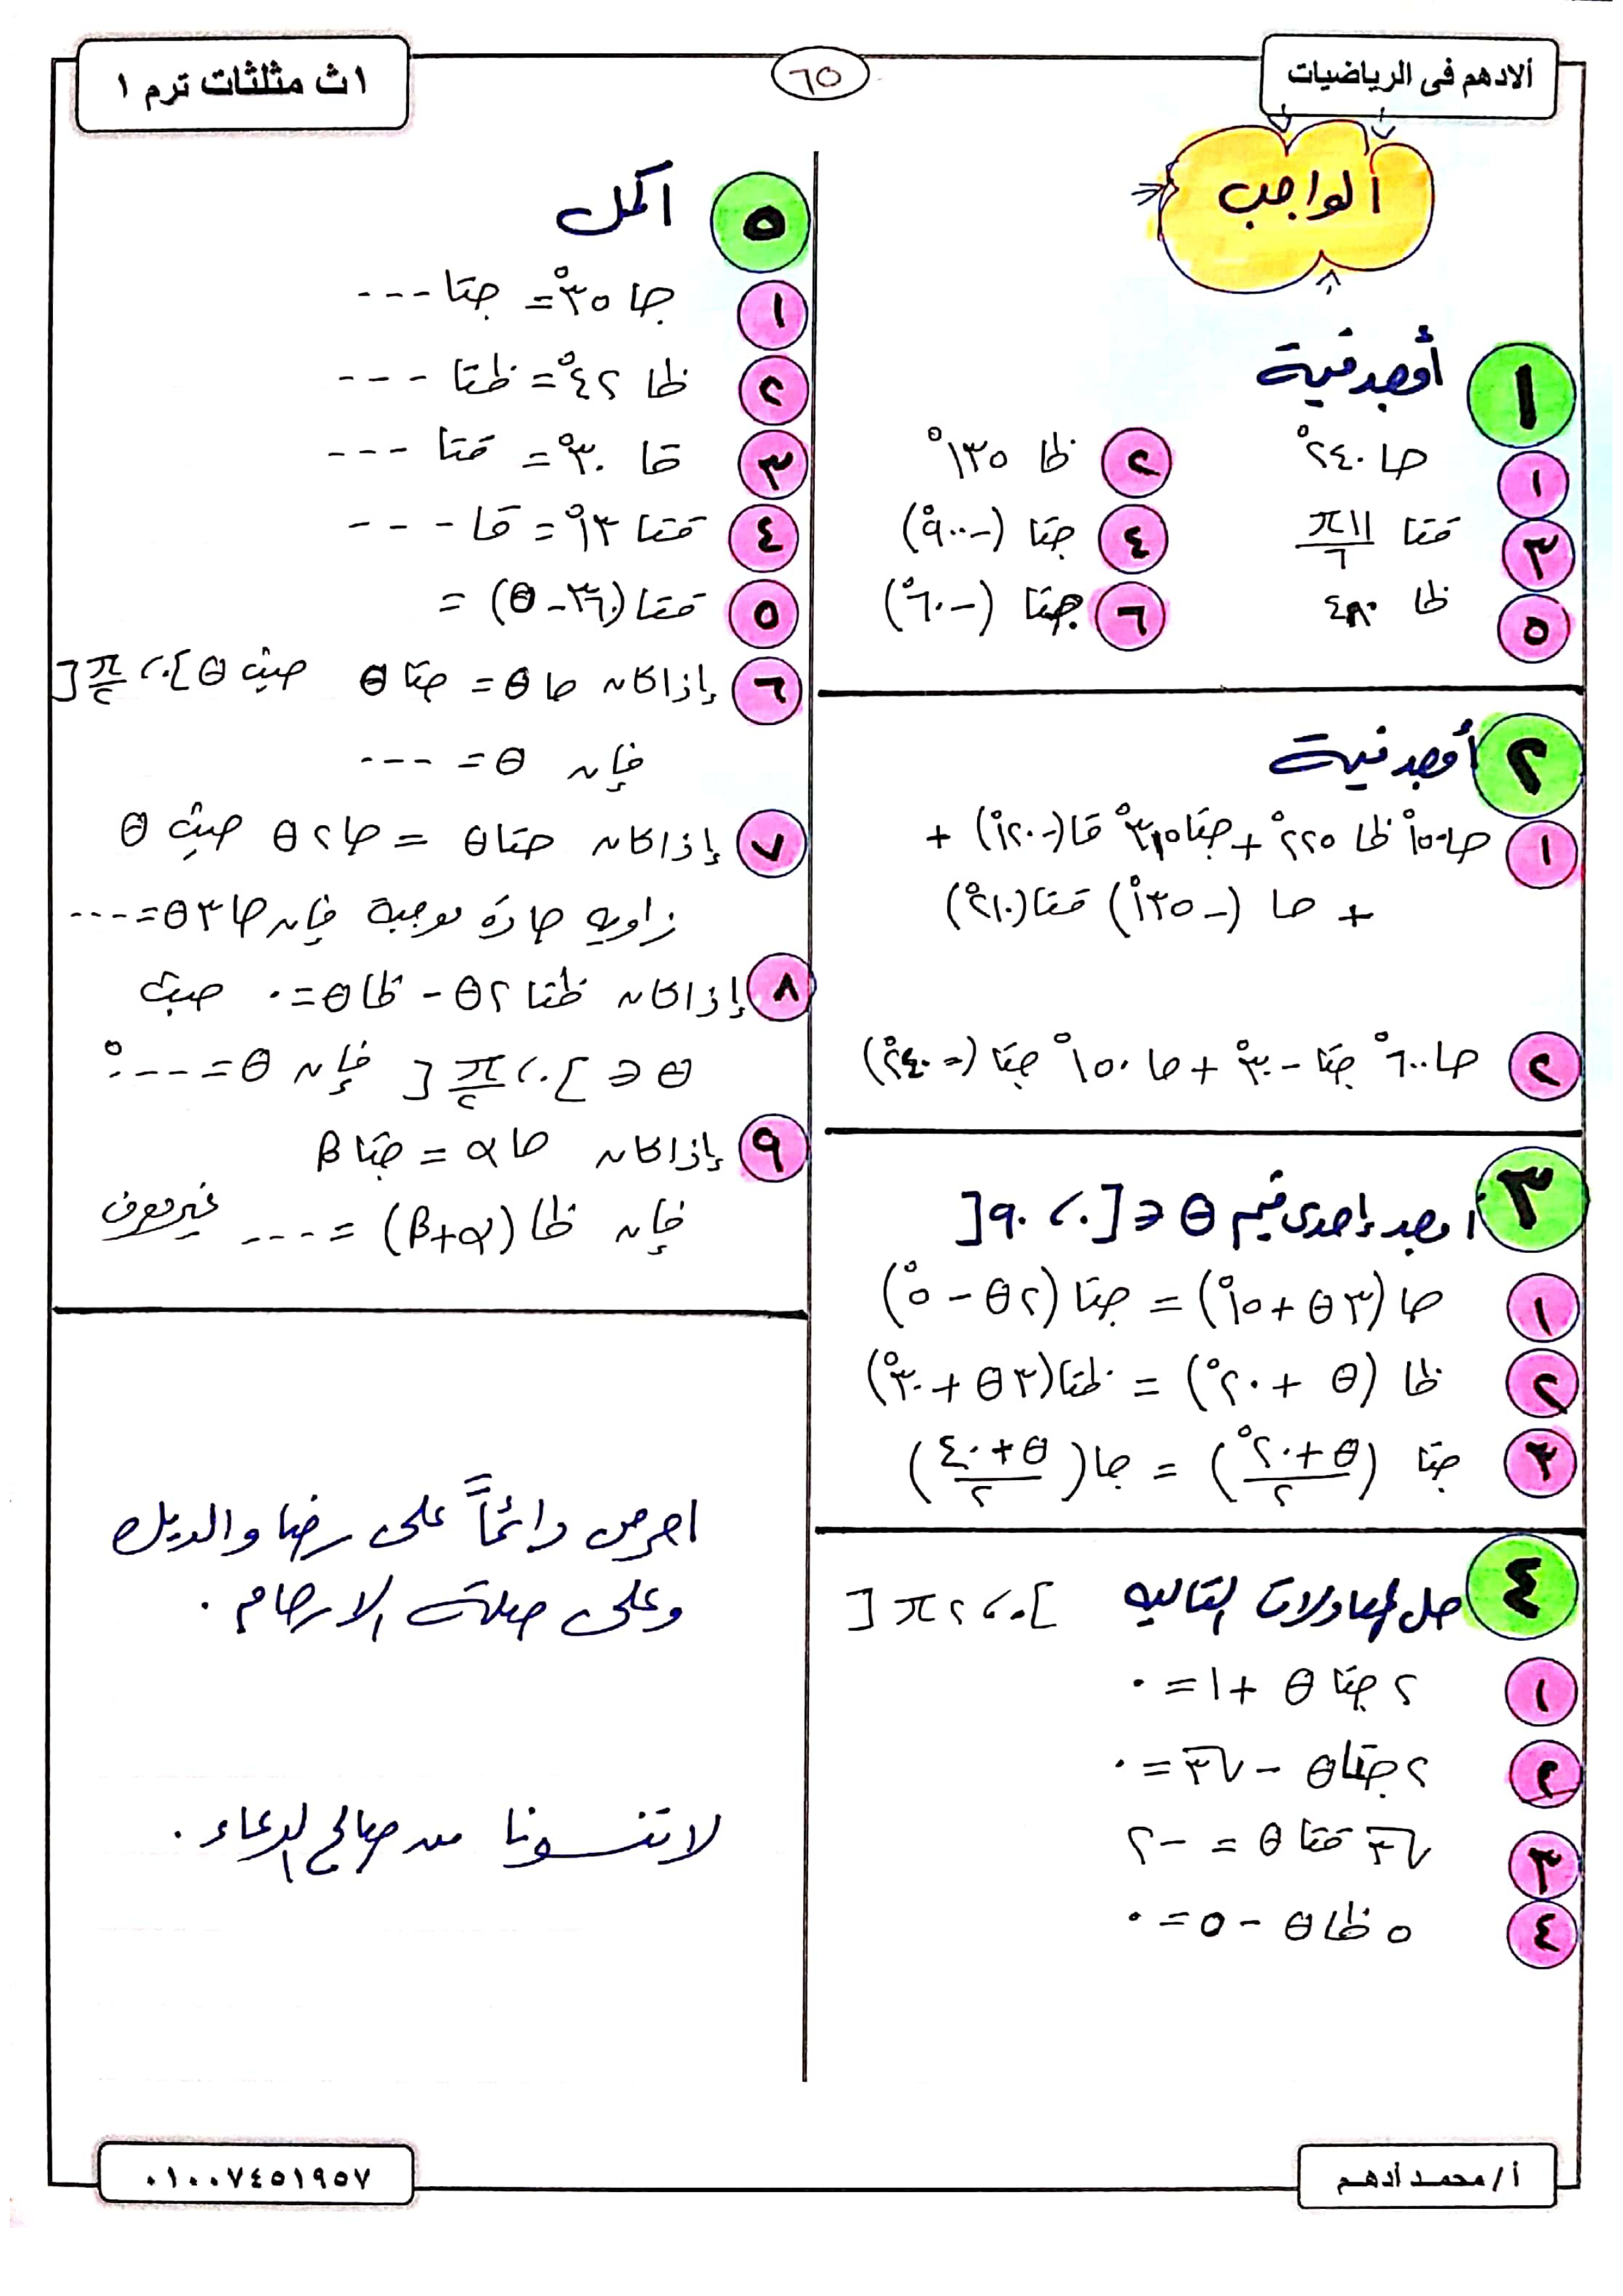 ألادهم فى الرياضيات
٦٥
١ث مثلثات ترم ١
الواجب
١ أوجد قيمة
١ حا ٢٤٠°
٢ ظا ١٣٥°
٣ قتا ١١π/٦
٤ جتا (-٩٠٠°)
٥ ظا ٤٨٠
٦ جتا (-٦٠٠°)
٢ أوجد قيمة
١ حا ١٥٠° ظا ٢٢٥° + جتا ٣١٥° قا (-١٢٠°) +
+ حا (-١٣٥°) قتا (٢١٠°)
٢ حا ٦٠٠° جتا -٣٠° + حا ١٥٠° جتا (-٢٤٠°)
٣ أوجد إحدى قيم θ ∈ [٠، ٩٠]
١ حا (٣θ + ١٥°) = جتا (٢θ - ٥°)
٢ ظا (θ + ٢٠°) = ظتا (٣θ + ٣٠°)
٣ جتا ((θ+٢٠°)/٢) = جا ((θ+٤٠)/٢)
٤ حل المعادلات التاليه ]٠، ٢π[
١ ٢ جتا θ + ١ = ٠
٢ ٢ جتا θ - √٣ = ٠
٣ √٣ قتا θ = -٢
٤ ٥ ظا θ - ٥ = ٠
٥ اكمل
١ جا ٣٥° = جتا ---
٢ ظا ٤٢° = ظتا ---
٣ قا ٣٠° = قتا ---
٤ قتا ١٣° = قا ---
٥ قتا (٣٦٠ - θ) =
٦ إذا كان حا θ = جتا θ حيث θ ]٠، π/٢[
فإن θ = ---
٧ إذا كان حتا θ = حا ٢θ حيث θ
زاويه حادة موجبة فإن حا ٣θ = ---
٨ إذا كان ظتا ٢θ - ظا θ = ٠ حيث
θ ∈ ]٠، π/٢[ فإن θ = ---°
٩ إذا كان حا α = جتا β
فإن ظا (α+β) = --- غير معرف
احرص دائماً على رضا والديك
وعلى صلة الارحام .
لا تنسونا من صالح الدعاء .
أ / محمد أدهم
٠١٠٠٧٤٥١٩٥٧